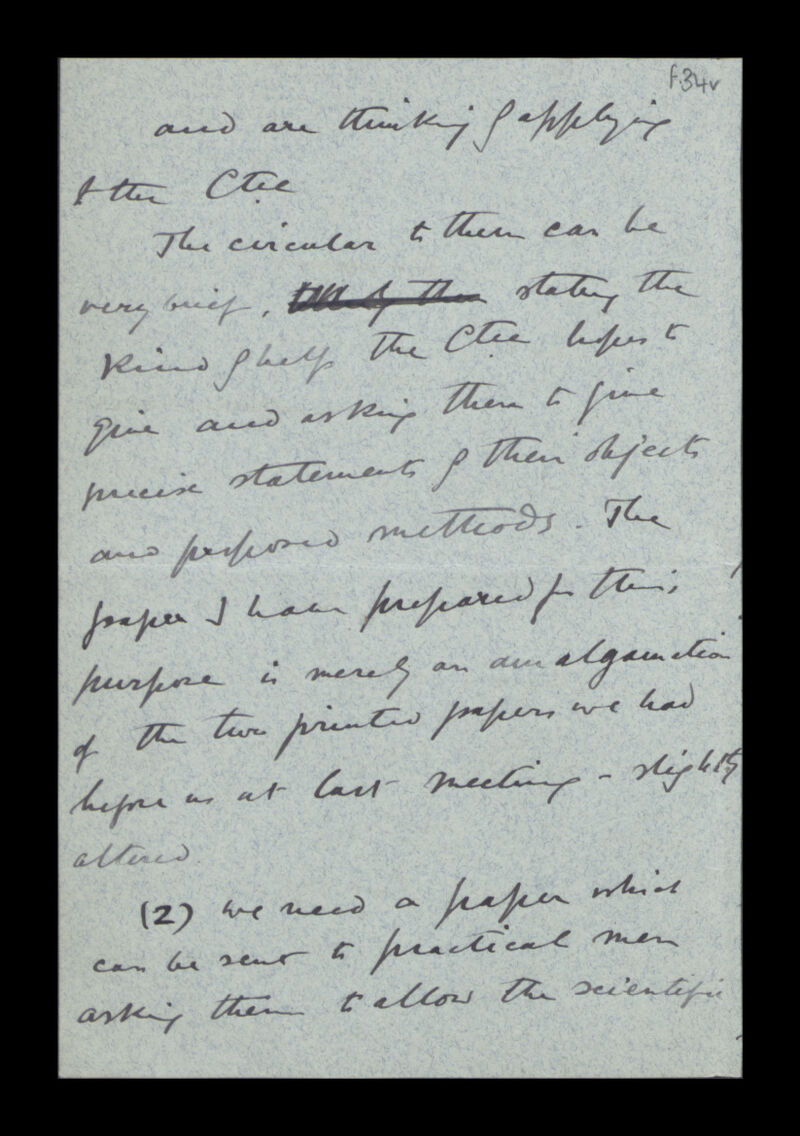 f.34v
and are thinking of applying
to the Ctee
The circular to them can be
very brief, stating the
kind of help the Ctee hopes to
give and asking them to give
precise statements of their objects
and proposed methods. The
paper I have prepared for this
purpose is merely an amalgamation
of the two printed papers we had
before us at last meeting - slightly
altered.
(2) we need a paper which
can be sent to practical men
asking them to allow the scientific